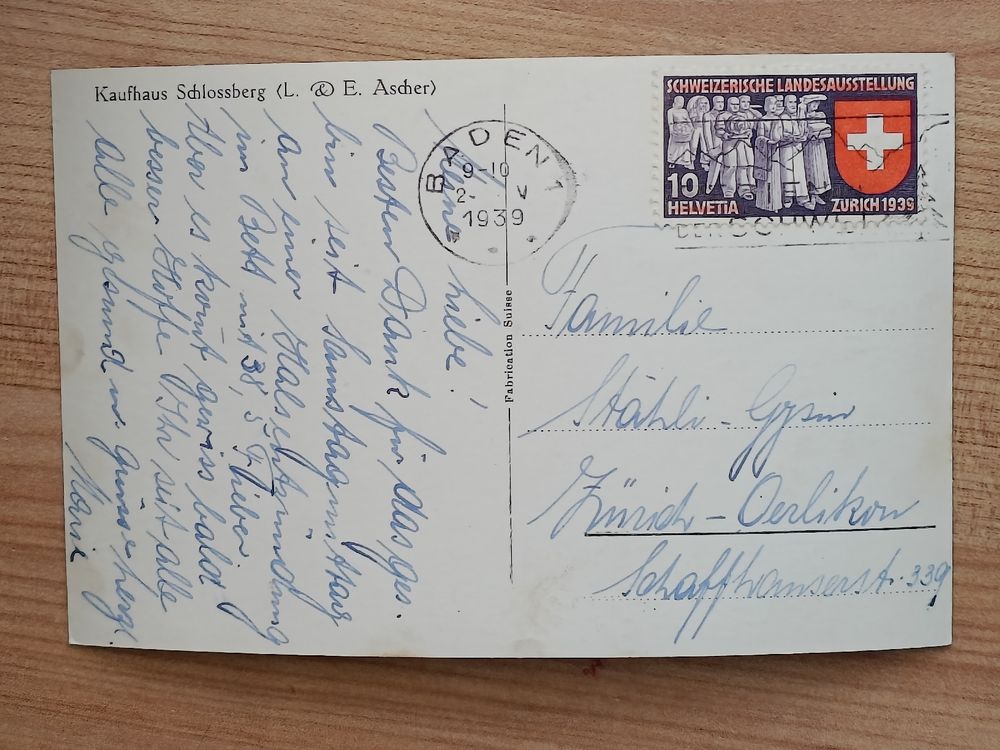 Kaufhaus Schlossberg (L. & E. Ascher)
Meine Liebe!
Besten Dank für das Ges.
bin seit Samstagmittag
an einer Halsentzündung
im Bett mit 38,5 Fieber
Aber es komt gewiss bald
besser. Hoffe Ihr seit alle
alle gesund u. grüsse herzl.
Marie
BADEN 1
9-10
2- V
1939
SCHWEIZERISCHE LANDESAUSSTELLUNG
10
HELVETIA
ZÜRICH 1939
DER SCHWEIZ
Fabrication Suisse
Familie
Stähli-Gysin
Zürich-Oerlikon
Schaffhauserst. 339